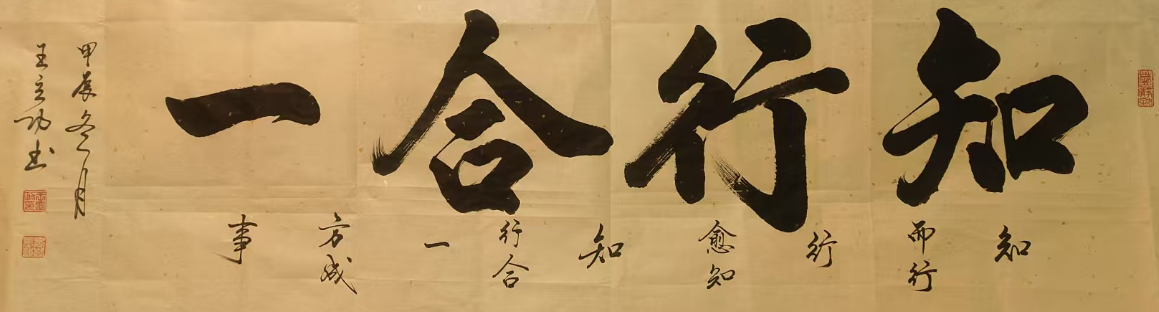 知行合一
知而行
行愈知
知行合一
方成事
甲辰冬月
王立功书